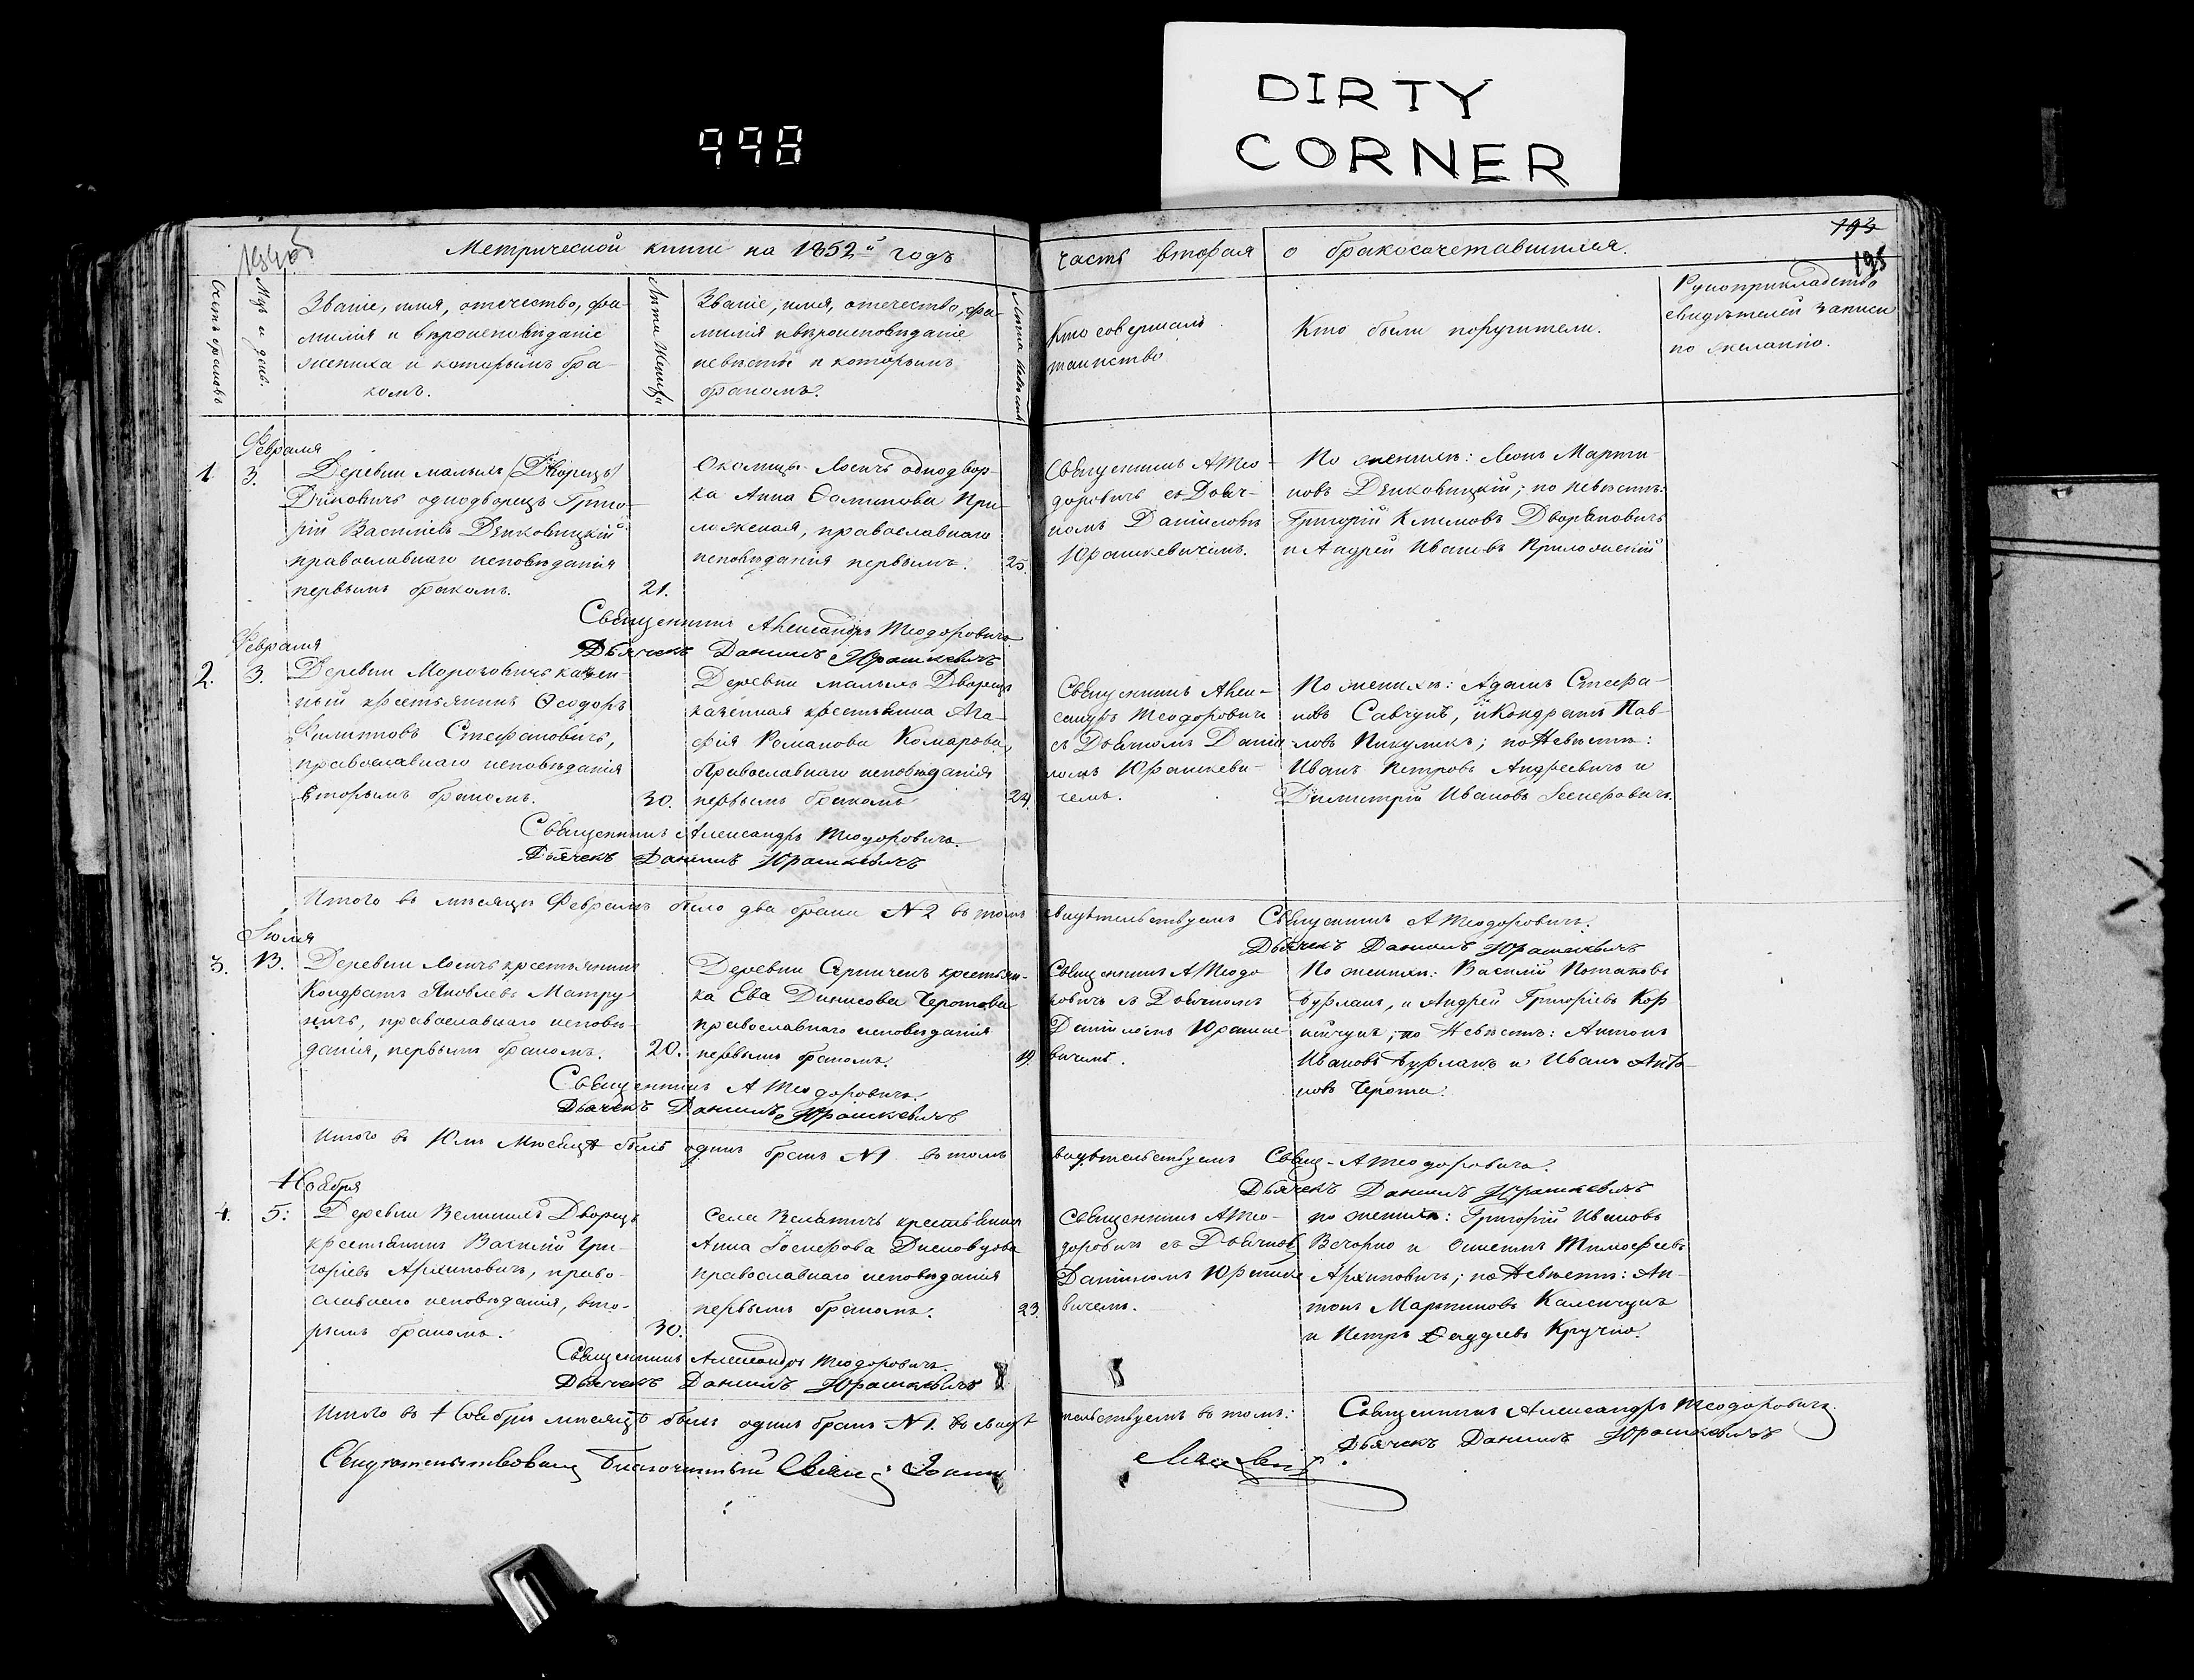 DIRTY
CORNER
998
193
195
Метрической книги на 1852й годъ
часть вторая о бракосочетавшихся.
Счетъ браковъ
Мцъ и день.
Званіе, имя, отечество, фа-
милія и вѣроисповѣданіе
жениха и которымъ бра-
комъ.
Лѣта Жениха
Званіе, имя, отечество, фа-
милія и вѣроисповѣданіе
невѣсты и которымъ
бракомъ.
Лѣта Невѣсты
Кто совершалъ
таинство
Кто были поручители.
Рукоприкладство
свидѣтелей записи
по желанію.
Февраля
1. 3.
Деревни малыхъ Дворецъ
однодворецъ Григо-
рій Васильевъ Денковицкій
православнаго исповѣданія
первымъ бракомъ.
21.
Околицы Лосичъ однодвор-
ка Анна При-
ложская, православнаго
исповѣданія первымъ.
25.
Священникъ А Тео-
доровичъ съ Дьяч-
комъ Даніиломъ
Юрашкевичемъ.
По женихѣ: Леонъ Марти-
новъ Денковицкій; по невѣстѣ:
Григорій Климовъ Дворановичъ
и Андрей Ивановъ Приложскій
Священникъ Александръ Теодоровичъ
Дьячекъ Даниилъ Юрашкевичъ
Февраля
2. 3.
Деревни Морозовичъ казен-
ный крестьянинъ Ѳеодоръ
Филиповъ Стефановичъ,
православнаго исповѣданія
вторымъ бракомъ.
30.
Деревни малыхъ Дворецъ
казенная крестьянка Ага-
фія Романова Комарова,
православнаго исповѣданія
первымъ бракомъ
24.
Священникъ Алек-
сандръ Теодоровичъ
съ Дьячкомъ Даніи-
ломъ Юрашкеви-
чемъ.
По женихѣ: Адамъ Стефа-
новъ Савчукъ, и Кондратъ Пав-
ловъ Пикуликъ; по Невѣстѣ:
Иванъ Петровъ Андреевичъ и
Димитрій Ивановъ
Священникъ Александръ Теодоровичъ.
Дьячекъ Даниилъ Юрашкевичъ
Итого въ мѣсяцѣ Февралѣ было два брака N 2 въ томъ свидѣтельствуемъ Священникъ А Теодоровичъ.
Дьячекъ Даниилъ Юрашкевичъ
Іюля
3. 13.
Деревни Лосичъ крестьянинъ
Кондратъ Яковлевъ Матру-
ничъ, православнаго исповѣ-
данія, первымъ бракомъ.
20.
Деревни крестьян-
ка Ева Динисова Черотова
православнаго исповѣданія
первымъ бракомъ.
19.
Священникъ А Теодо
ровичъ съ Дьячкомъ
Даніиломъ Юрашке-
вичемъ.
По женихѣ: Василій Потаповъ
Бурлакъ, и Андрей Григоріевъ Кор
нійчукъ; по Невѣстѣ: Антонъ
Ивановъ Бурлакъ и Иванъ Анто-
новъ Черота.
Священникъ А Теодоровичъ.
Дьячекъ Даниилъ Юрашкевичъ
Итого въ Юлѣ Мѣсяцѣ былъ одинъ бракъ N 1 въ томъ свидѣтельствуемъ Свящ. А Теодоровичъ.
Дьячекъ Даниилъ Юрашкевичъ
Ноября
4. 5:
Деревни Великихъ Дворецъ
крестьянинъ Василій Гри-
горіевъ Архиповичъ, право-
славнаго исповѣданія, вто-
рымъ бракомъ.
30.
Села Велятичъ крестьянка
Анна
православнаго исповѣданія
первымъ бракомъ.
23.
Священникъ А Тео-
доровичъ съ Дьячкомъ
Даніиломъ Юрашке
вичемъ.
по женихѣ: Григорій Ивановъ
Вечорко и Тимофеевъ
Архиповичъ; по Невѣстѣ: Ан-
тонъ Мартиновъ Каленчукъ
и Петръ Фаддеевъ Кручко.
Священникъ Александръ Теодоровичъ.
Дьячекъ Даниилъ Юрашкевичъ
Итого въ Ноябрѣ мѣсяцѣ былъ одинъ бракъ N 1. Свидѣ тельствуемъ въ томъ: Священникъ Александръ Теодоровичъ.
Дьячекъ Даниилъ Юрашкевичъ
Свидетельствовалъ Благочинный Священ: Іоаннъ